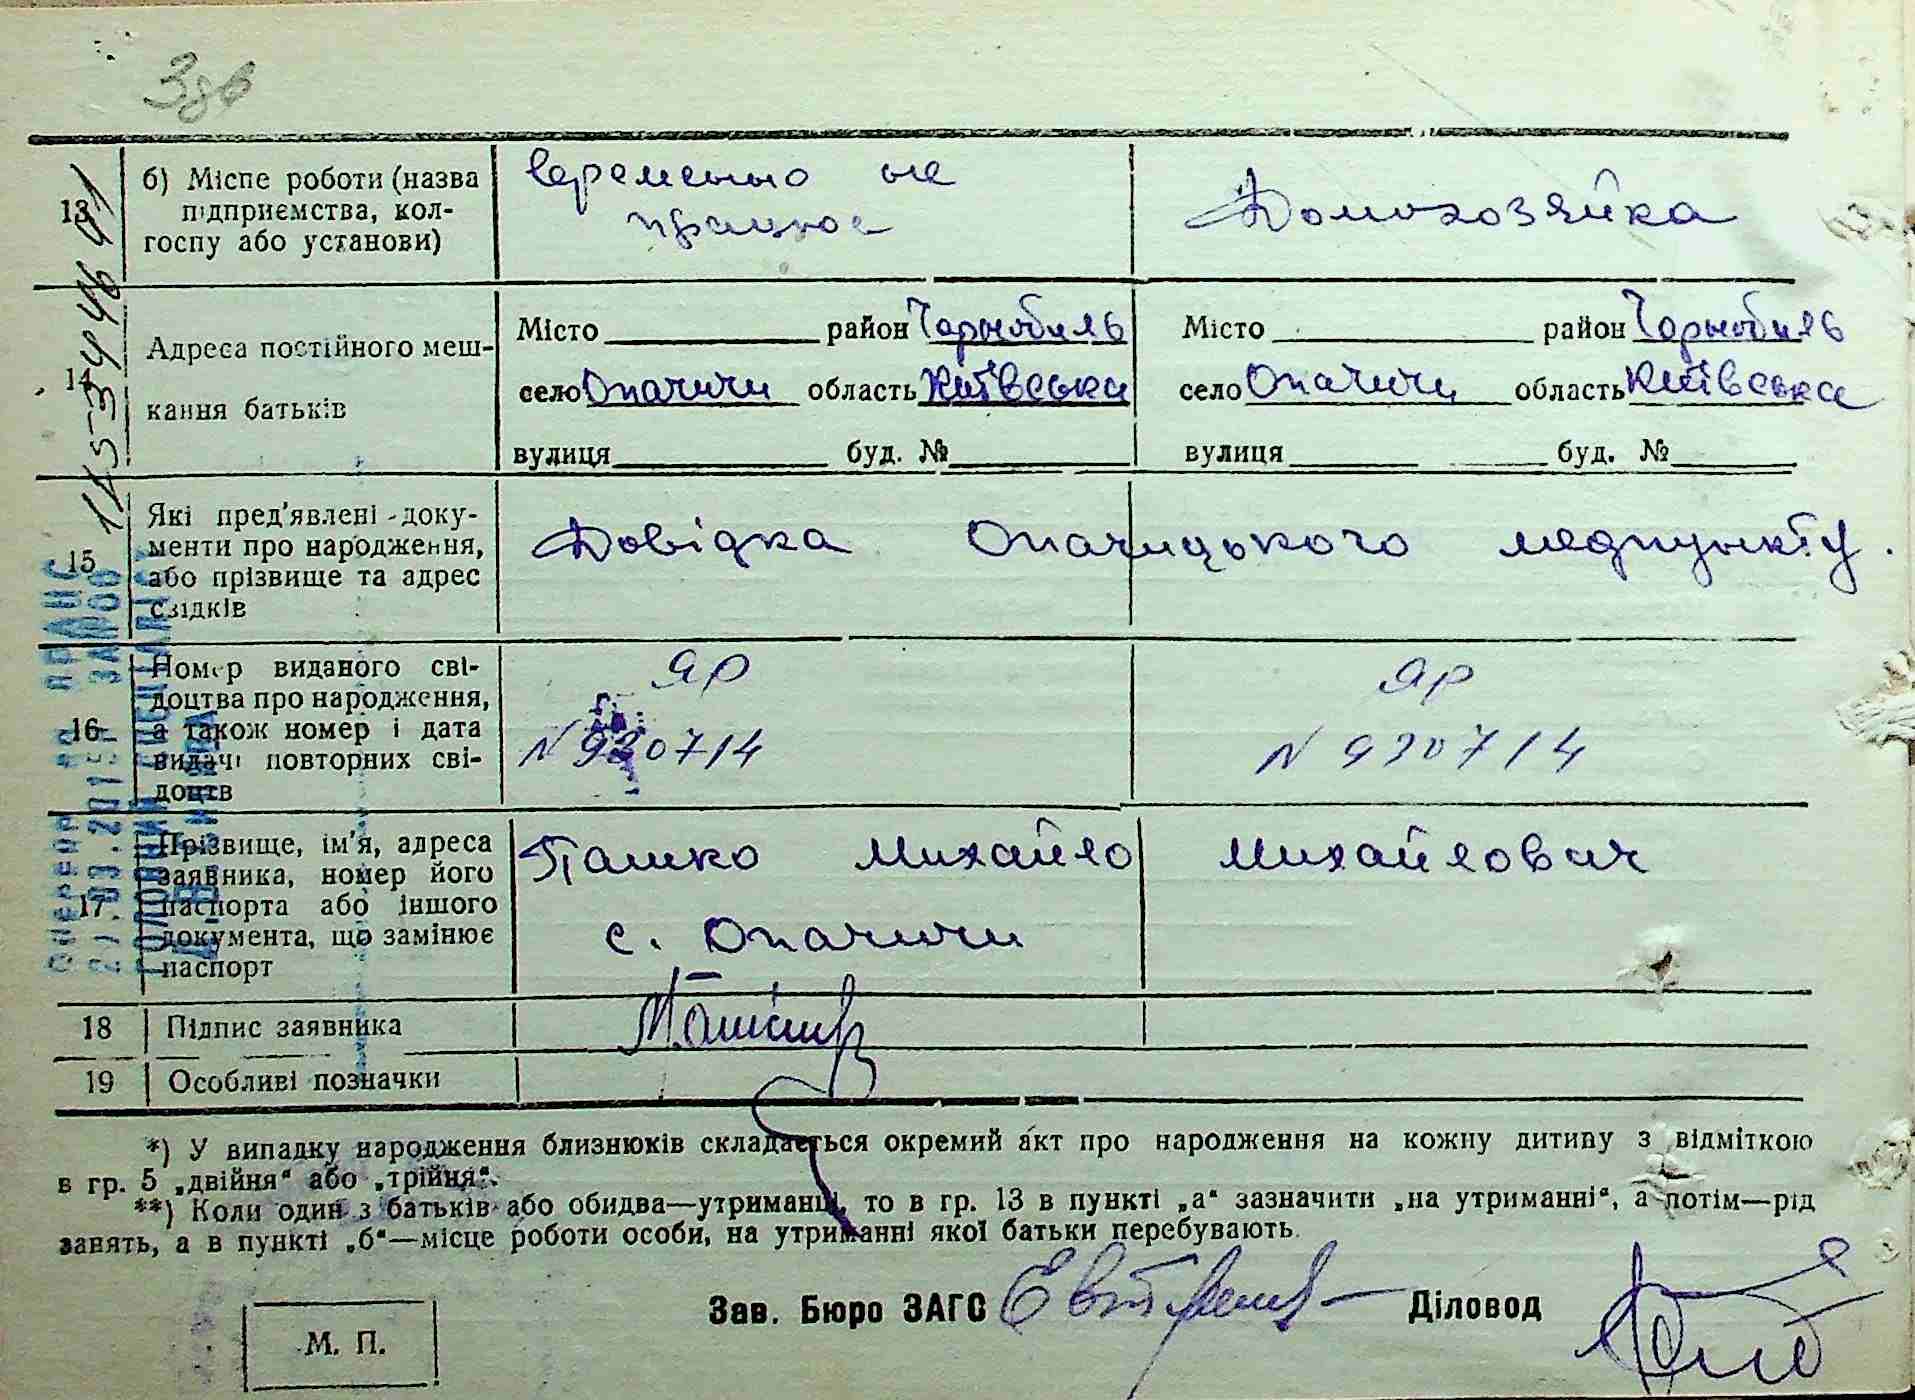 386
13
б) Місце роботи (назва
підприємства, кол-
госпу або установи)
временно не
працює
Домохозяйка
14
Адреса постійного меш-
кання батьків
Місто район Чорнобиль
село Опачичи область Київська
вулиця буд. №
Місто район Чорнобиль
село Опачичи область Київська
вулиця буд. №
15
Які пред'явлені доку-
менти про народження,
або прізвище та адрес
свідків
Довідка Опачицького медпункту.
16
Номер виданого сві-
доцтва про народження,
а також номер і дата
видачі повторних сві-
доцтв
ЯР
N 930714
ЯР
N 930714
17
Прізвище, ім'я, адреса
заявника, номер його
паспорта або іншого
документа, що замінює
паспорт
Пашко Михайло Михайлович
с. Опачичи
18 Підпис заявника
19 Особливі позначки
*) У випадку народження близнюків складається окремий акт про народження на кожну дитину з відміткою
в гр. 5 „двійня“ або „трійня“.
**) Коли один з батьків або обидва—утриманці, то в гр. 13 в пункті „а“ зазначити „на утриманні“, а потім—рід
занять, а в пункті „б“—місце роботи особи, на утриманні якої батьки перебувають.
Зав. Бюро ЗАГС Діловод
М. П.